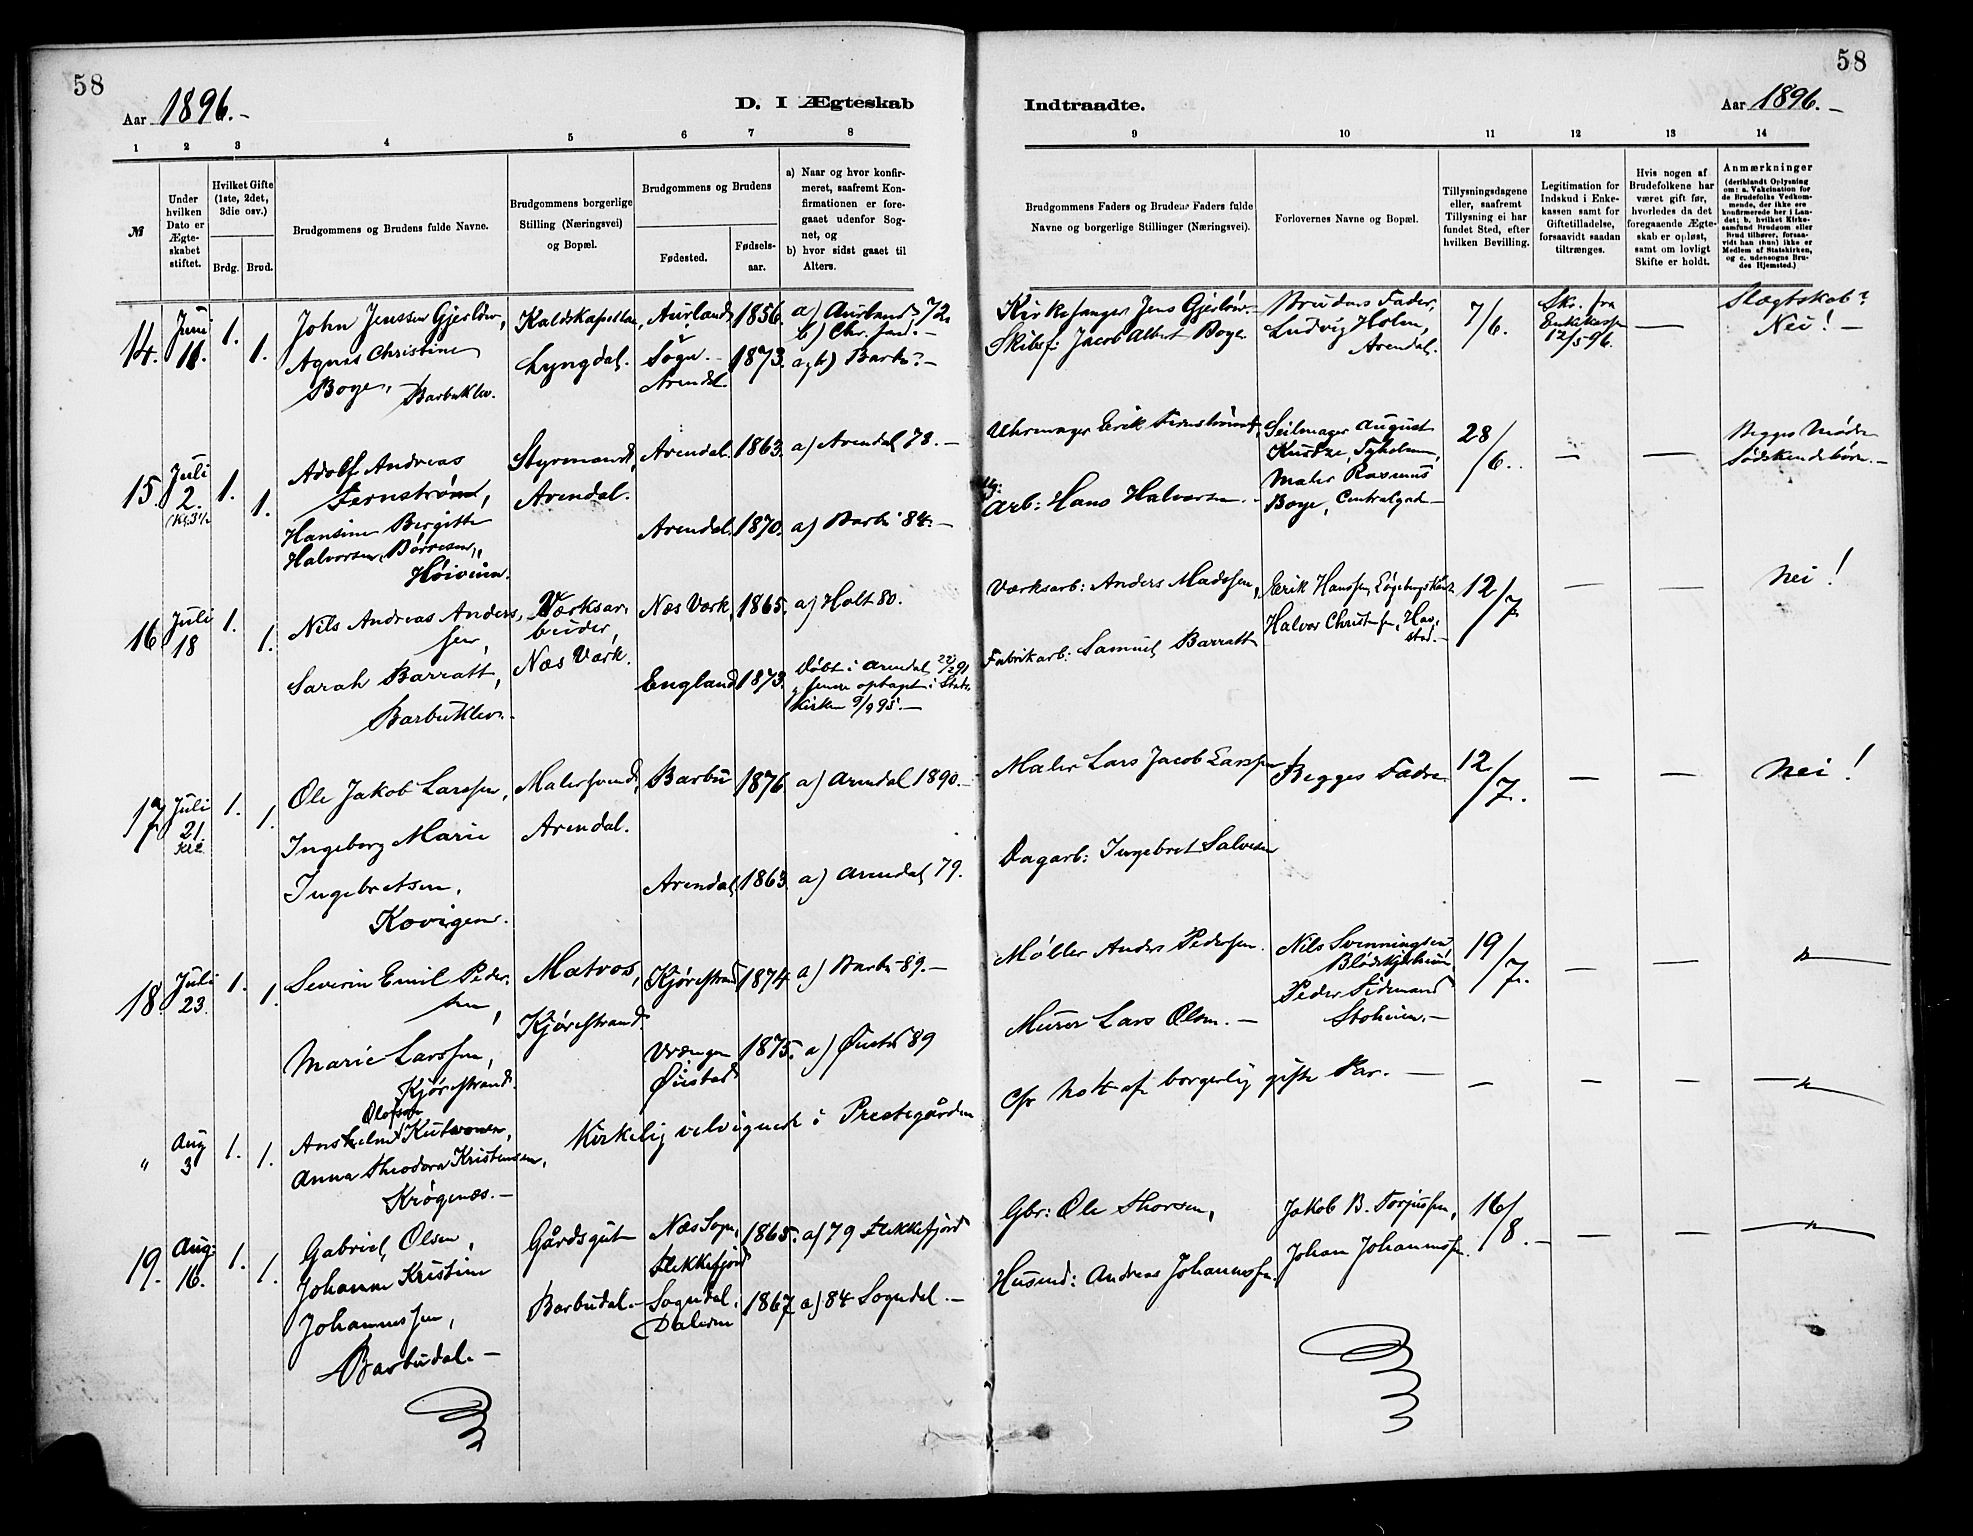 58
Aar 1896.-
D. I Ægteskab
1 2 3 4 5 6 7 8
№
Under hvilken Dato er Ægteskabet stiftet.
Hvilket Gifte (1ste, 2det, 3die osv.)
Brdg. Brud.
Brudgommens og Brudens fulde Navne.
Brudgommens borgerlige Stilling (Næringsvei) og Bopæl.
Brudgommens og Brudens
Fødested.
Fødsels-aar.
a) Naar og hvor konfirmeret, saafremt Konfirmationen er foregaaet udenfor Sognet, og
b) hvor sidst gaaet til Alters.
14. Juni 11. 1. 1.
John Jenssen Gjerløw,
Agnes Christine
Boye, Barbuklev.
Kaldskapellan,
Lyngdal.
Aurland,
Sogn.-
Arendal.
1856.
1873.
a) Aurland 72.
b) Chr.sand.-
a, b) Barbu.-
15. Juli 2. 1. 1.
Adolf Andreas
Fernstrøm,
Hansine Bergitte
Halvorsen, Børresen,
Høiveien.
Styrmand,
Arendal.
Arendal. 1863. a) Arendal 78.-
Arendal. 1870. a) Barbu 84.-
16 Juli 18 1. 1.
Nils Andreas Anders-
sen,
Sarah Barratt,
Barbuklev.
Værksar-
beider,
Næs Værk.
Næs Værk, 1865. a) Holt 80.
England 1873. Døbt i Arendal 22/2 91
senere optaget i Stats-
kirken 9/9 95.-
17 Juli 21. 1. 1.
Ole Jakob Larssen,
Ingeborg Marie
Ingebretsen,
Kovigen.
Malersvend,
Arendal.
Barbu 1876 a) Arendal 1890.-
Arendal, 1863 a) Arendal 79.
18. Juli 23. 1. 1.
Severin Emil Peder-
sen,
Marie Larssen,
Kjørrestrand.
Matros,
Kjørrestrand.
Kjørrestrand 1874. a) Barbu 89.-
Vrængen
Øiestad
1875. a) Øiestad 89
" Aug 3 1. 1.
Olofson
Anshelm Kutvonen,
Anna Theodora Kristensen,
Krøgenæs.-
Kirkelig velsignede i Prestegården
19. Aug: 16. 1. 1.
Gabriel Olsen,
Johanne Kristine
Johannessen,
Barbudal.-
Gårdsgut
Barbudal.-
Næs Sogn,
Flekkefjord
Sogndal,
Dalerne
1865. a) 79 Flekkefjord
1867 a) 84 Sogndal.-
58
Indtraadte.
Aar 1896.-
9 10 11 12 13 14
Brudgommens Faders og Brudens Faders fulde Navne og borgerlige Stillinger (Næringsvei).
Forlovernes Navne og Bopæl.
Tillysningsdagene eller, saafremt Tillysning ei har fundet Sted, efter hvilken Bevilling.
Legitimation for Indskud i Enkekassen samt for Giftetilladelse, forsaavidt saadan tiltrænges.
Hvis nogen af Brudefolkene har været gift før, hvorledes da det foregaaende Ægteskab er opløst, samt om lovligt Skifte er holdt.
Anmærkninger
(deriblandt Oplysning om: a. Vakcination for de Brudefolks Vedkommende, der ikke ere konfirmerede her i Landet; b. hvilket Kirkesamfund Brudgom eller Brud tilhører, forsaavidt han (hun) ikke er Medlem af Statskirken, og c. udensogns Brudes Hjemsted.)
Kirkesanger Jens Gjerløw.
Skibsf: Jacob Albert Boye
Brudens Fader,
Ludvig Holm,
Arendal.
7/6.
Skr. fra
Enkekassen
12/5 96.
-
Slægtskab?
Nei!-
Uhrmager Erik Fernstrøm,
Arb: Hans Halvorsen.
Seilmager August
Tyholmen,
Maler Rasmus
Boye, Centralgad-
28/6.
- -
Begges Mødre
Sødskendebørn.-
Værksarb: Anders Madssen,
Fabrikarb: Samuel Barratt
Erik Hanssen,
Halvor Christensen, Hav-
stad.-
12/7
- -
Nei!
Maler Lars Jacob Larssen
Dagarb: Ingebret Salvesen
Begges Fædre
12/7.
- -
Nei!
Møller Anders Pedersen.
Murer Lars Olsen.-
Nils Svenningsen,
Blødekjærheien,
Peder Sidemand
Stoheien.-
19/7.
- -
"
Cfr Nott af borgerlig gifte Par.-
- - - "
Gbr: Ole Thorsen,
Husmd: Andreas Johannessen.
Jakob B. Torjussen,
Johan Johannessen.
16/8.-
- -
"